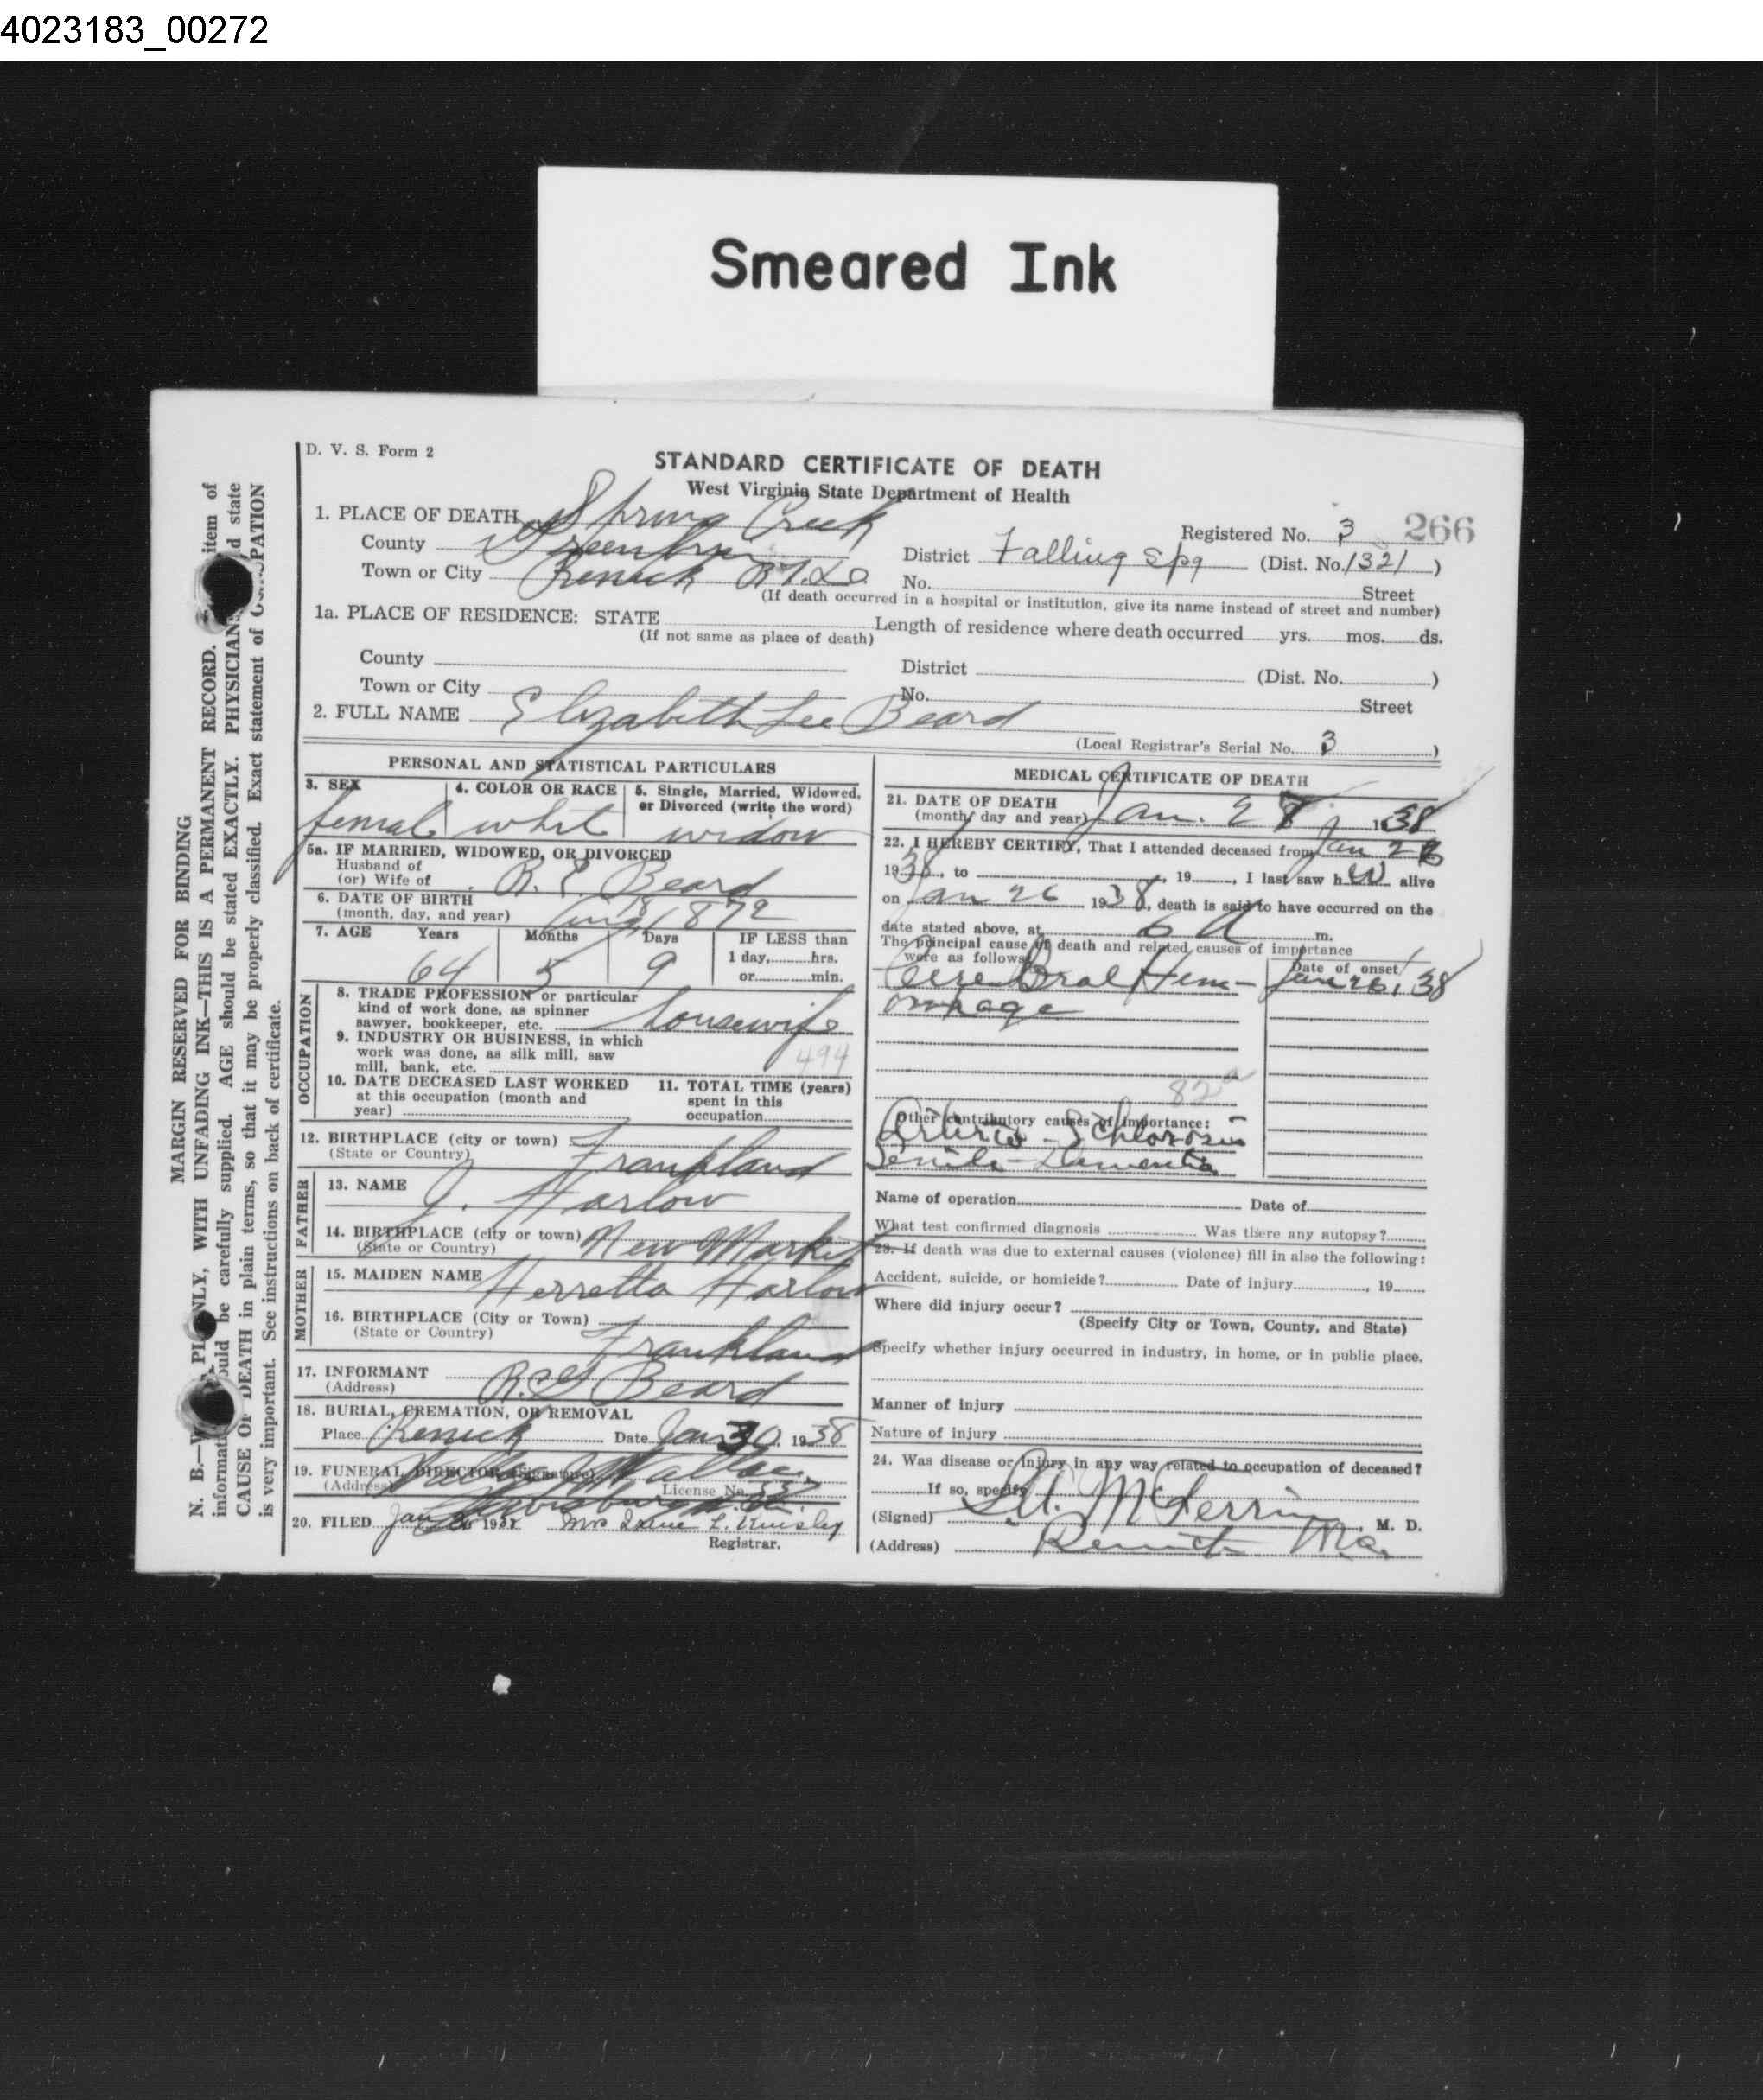 4023183_00272
Smeared Ink
D. V. S. Form 2
STANDARD CERTIFICATE OF DEATH
West Virginia State Department of Health
1. PLACE OF DEATH Spring Creek
Registered No. 3 266
County Greenbrier
District Falling Spg (Dist. No. 1321)
Town or City Renick
No. Street
(If death occurred in a hospital or institution, give its name instead of street and number)
1a. PLACE OF RESIDENCE: STATE Length of residence where death occurred yrs. mos. ds.
(If not same as place of death)
County District (Dist. No. )
Town or City No. Street
2. FULL NAME Elizabeth Lee Beard
(Local Registrar's Serial No. 3 )
PERSONAL AND STATISTICAL PARTICULARS
3. SEX 4. COLOR OR RACE 5. Single, Married, Widowed, or Divorced (write the word)
female white widow
5a. IF MARRIED, WIDOWED, OR DIVORCED
Husband of
(or) Wife of R. E. Beard
6. DATE OF BIRTH
(month, day, and year) Aug 18 1872
7. AGE Years Months Days IF LESS than
1 day, hrs.
or min.
64 5 9
OCCUPATION
8. TRADE PROFESSION or particular
kind of work done, as spinner
sawyer, bookkeeper, etc. housewife
9. INDUSTRY OR BUSINESS, in which
work was done, as silk mill, saw
mill, bank, etc.
494
10. DATE DECEASED LAST WORKED
at this occupation (month and
year)
11. TOTAL TIME (years)
spent in this
occupation
12. BIRTHPLACE (city or town)
(State or Country) Frankland
FATHER
13. NAME J. Harlow
14. BIRTHPLACE (city or town) New Market
(State or Country)
MOTHER
15. MAIDEN NAME Herretta Harlow
16. BIRTHPLACE (City or Town)
(State or Country) Frankland
17. INFORMANT
(Address) Beard
18. BURIAL, CREMATION, OR REMOVAL
Place Renick Date Jan 30, 1938
19. FUNERAL DIRECTOR (Signature) Wallace
(Address) License No. 537
20. FILED Jan 1938 Mrs Irene L. Kinsley
Registrar.
MEDICAL CERTIFICATE OF DEATH
21. DATE OF DEATH
(month, day and year) Jan. 27 1938
22. I HEREBY CERTIFY, That I attended deceased from Jan 26
1938, to , 19 , I last saw her alive
on Jan 26 1938, death is said to have occurred on the
date stated above, at 6 A m.
The principal cause of death and related causes of importance
were as follows: Date of onset
Cerebral Hem- Jan 26, 38
orrhage
82a
Other contributory causes of importance:
Arterio-Schlorosis
Senile-Dementia
Name of operation Date of
What test confirmed diagnosis Was there any autopsy?
23. If death was due to external causes (violence) fill in also the following:
Accident, suicide, or homicide? Date of injury , 19
Where did injury occur?
(Specify City or Town, County, and State)
Specify whether injury occurred in industry, in home, or in public place.
Manner of injury
Nature of injury
24. Was disease or injury in any way related to occupation of deceased?
If so, specify
(Signed) McFerrin M. D.
(Address)
MARGIN RESERVED FOR BINDING
N. B.— PLAINLY, WITH UNFADING INK—THIS IS A PERMANENT RECORD. item of
should be carefully supplied. AGE should be stated EXACTLY. PHYSICIANS state
CAUSE OF DEATH in plain terms, so that it may be properly classified. Exact statement of OCCUPATION
is very important. See instructions on back of certificate.